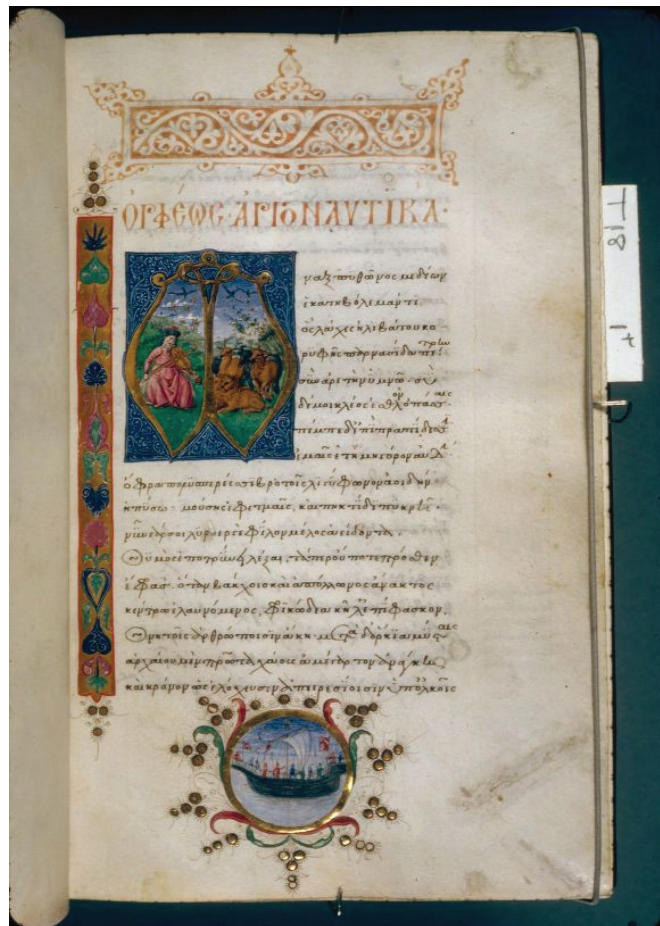 ὈΡΦΈΩΣ ἈΡΓΟΝΑΥΤΙΚΆ·
Ὦναξ πυθῶνος μεδέων
ἑκατηβόλε μάντι
ὃς λάχες ἠλιβάτου κο
ρυφῆς παρνασσίδα πέτρην
σὴν ἀρετὴν ὑμνῶ· σὺ
δέ μοι κλέος ἐσθλὸν ὀπάσσαις·
πέμπε δ' ἐπὶ πραπίδεσσιν
ἐμαῖς ἐτυμηγόρον αὐδήν
ὄφρα πολυσπερέεσσι βροτοῖς λιγύφωνον ἀοιδὴν
ἠπύσω· μούσης ἐφετμαῖς, καὶ πηκτίδι πυκνῇ.
νῦν γάρ σοι λυροεργὲ φίλον μέλος ἀείδοντα.
Θυμὸς ἐποτρύνει λέξαι, τά περ οὔποτε πρόσθεν
ἔφρασ'. ὅταν βάκχοιο καὶ ἀπόλλωνος ἄνακτος
κέντρῳ ἐλαυνόμενος, φρικώδεα κῆλ' ἐπίφασκον.
Θνητοῖς ἀνθρώποισιν ἄκη. μεγάλ' ὄργια μύσταις
ἀρχαίου μὲν πρῶτα χάους ἀμέγαρτον ἀνάγκην
καὶ κρόνον ὃς ἐλόχευσεν ἀπειρεσίοισιν ὑφ' ὁλκοῖς